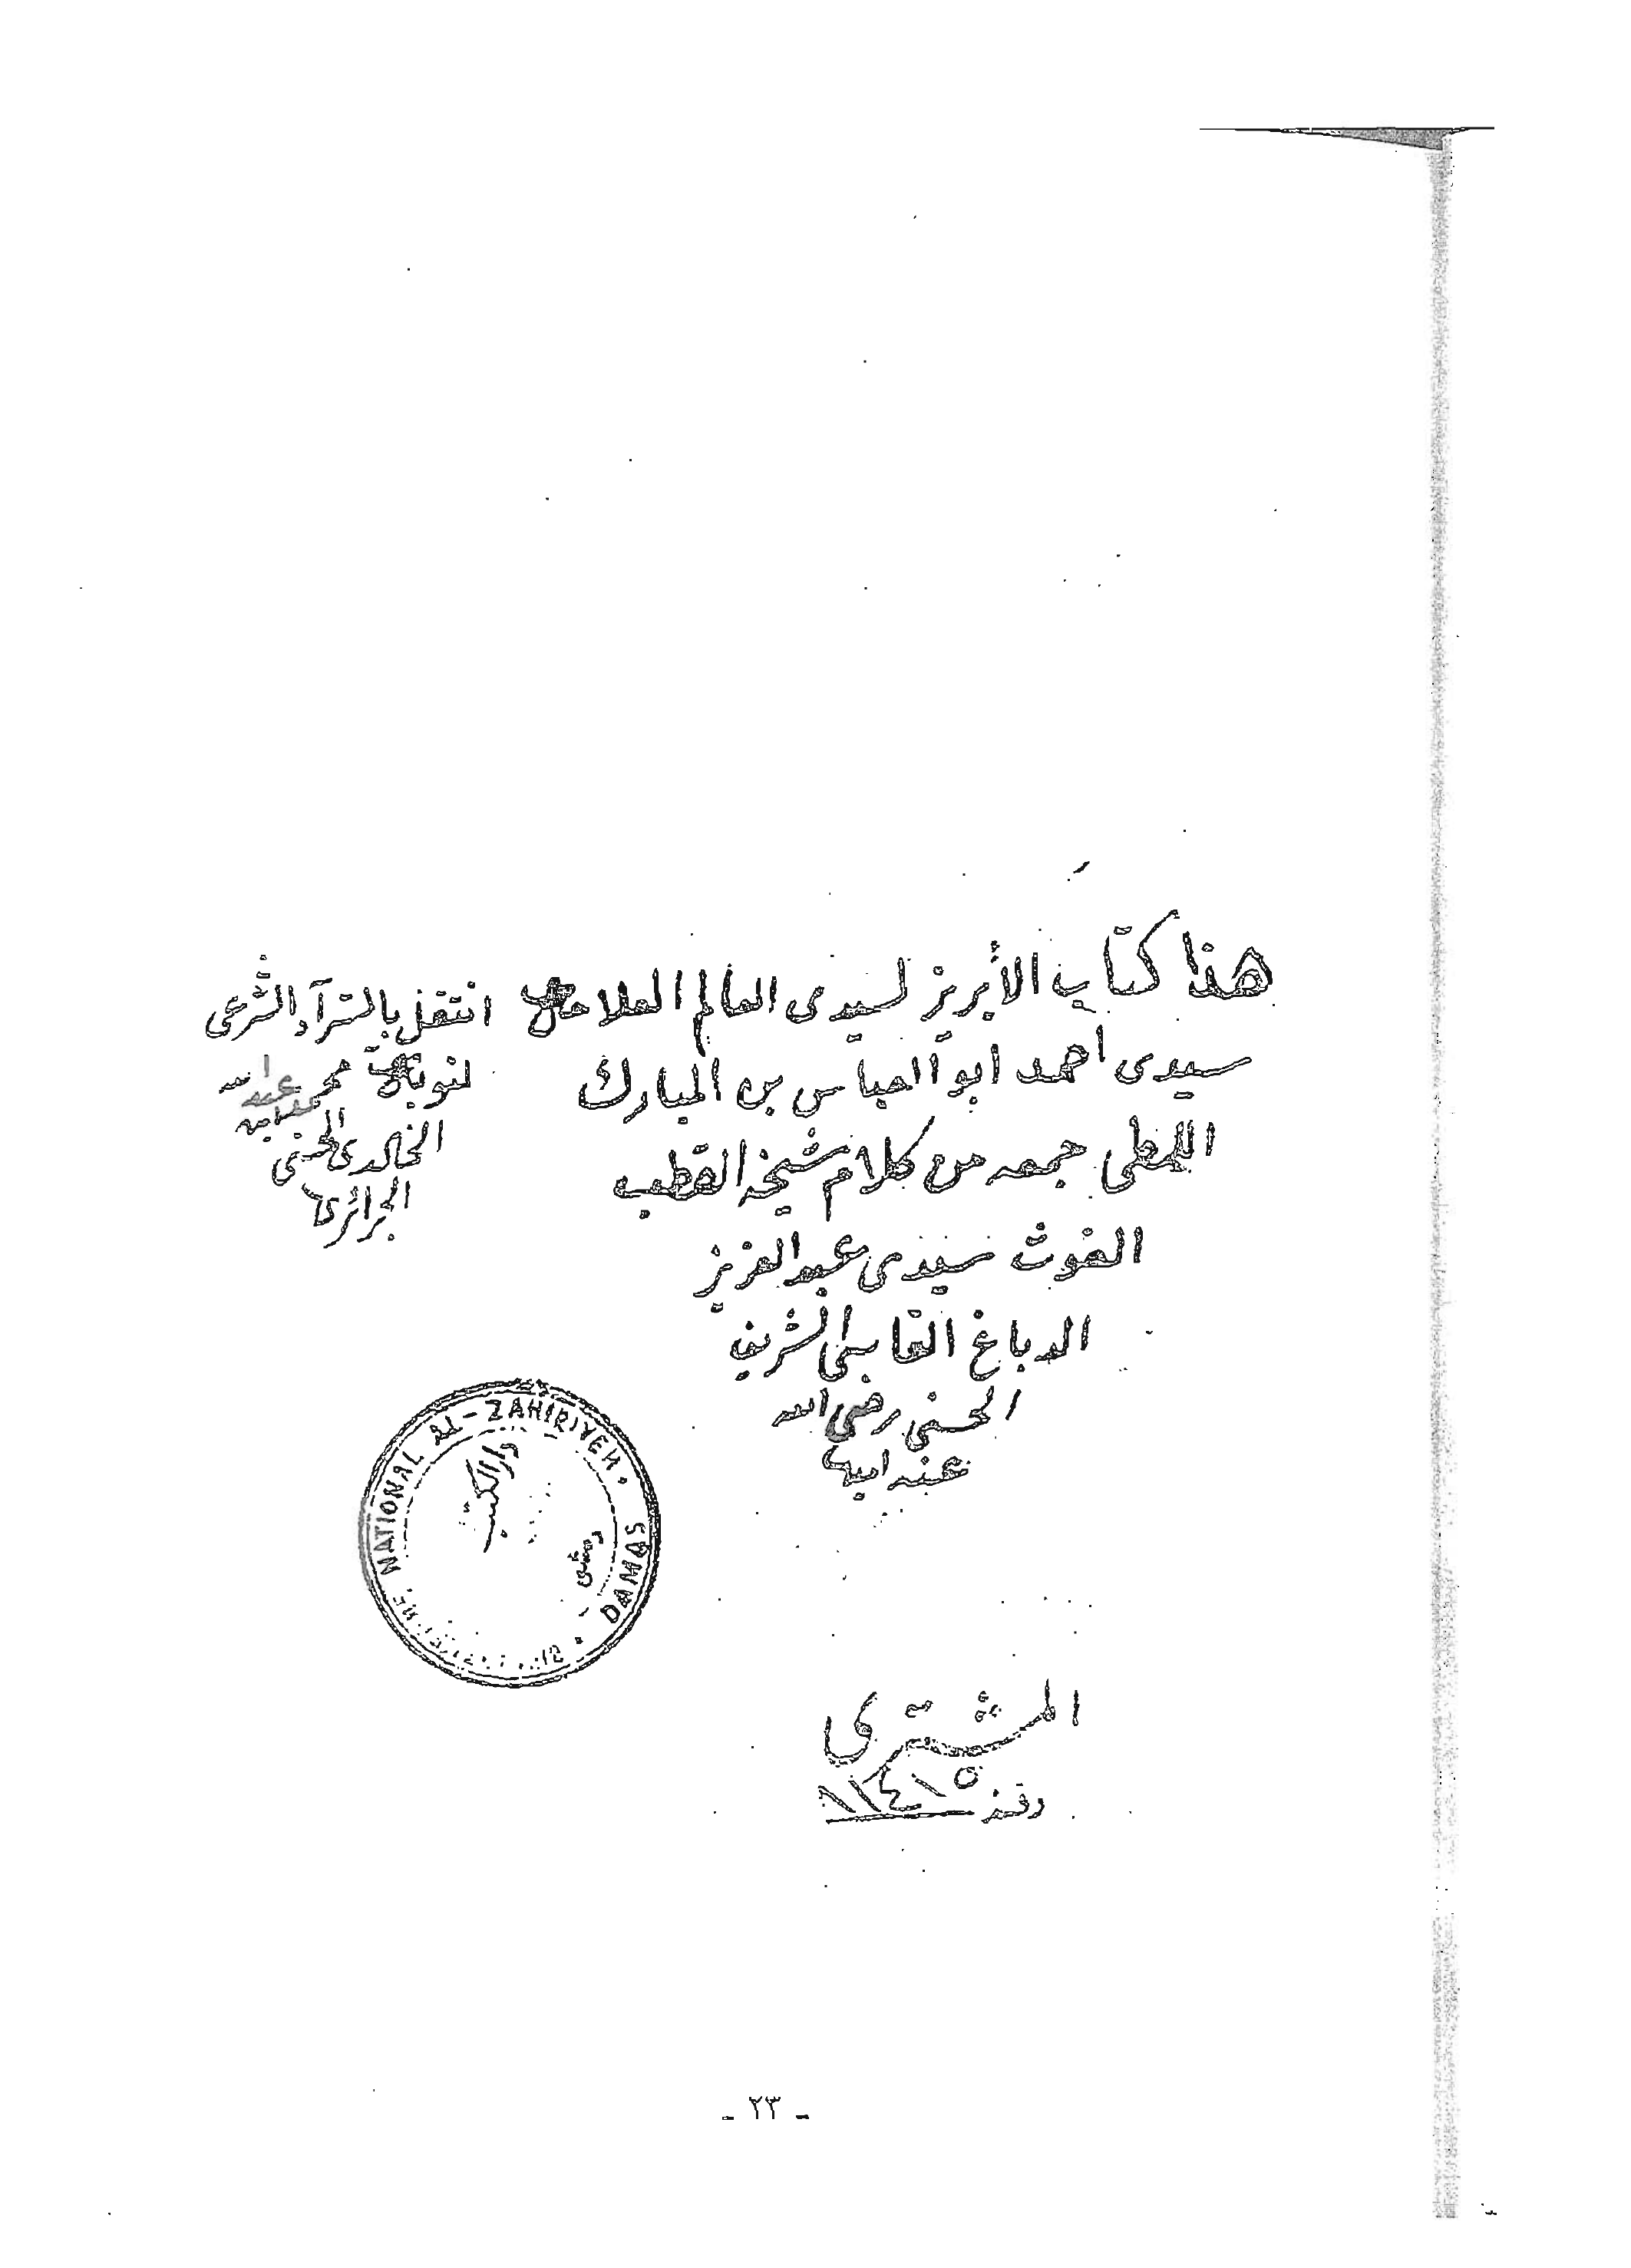 هذا كتاب الأبريز لسيدى العالم العلامة
سيدى احمد ابو العباس بن المبارك
اللمطى جمعه من كلام شيخه القطب
الغوث سيدى عبد العزيز
الدباغ الفاسى الشريف
الحسنى رضى الله
عنه امين
انتقل بالشرآء الشرعى
لنوبة محمد ابن عبد الله
الخالدى الحسنى
الجزائرى
NATIONAL AL-ZAHIRIYEH. DAMAS
دار الكتب
دمشق
المشترى
رقم ١١٤١٥
- ٢٣ -